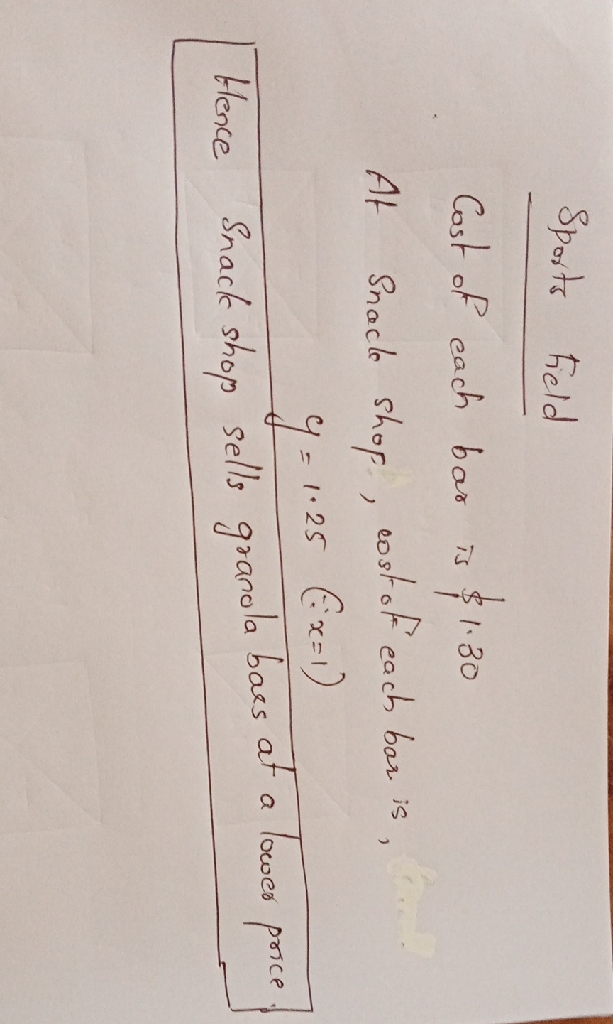 Sports field
Cost of each bar is $1.30
At Snack shop, cost of each bar is,
y = 1.25 (∵ x=1)
Hence Snack shop sells granola bars at a lower price.